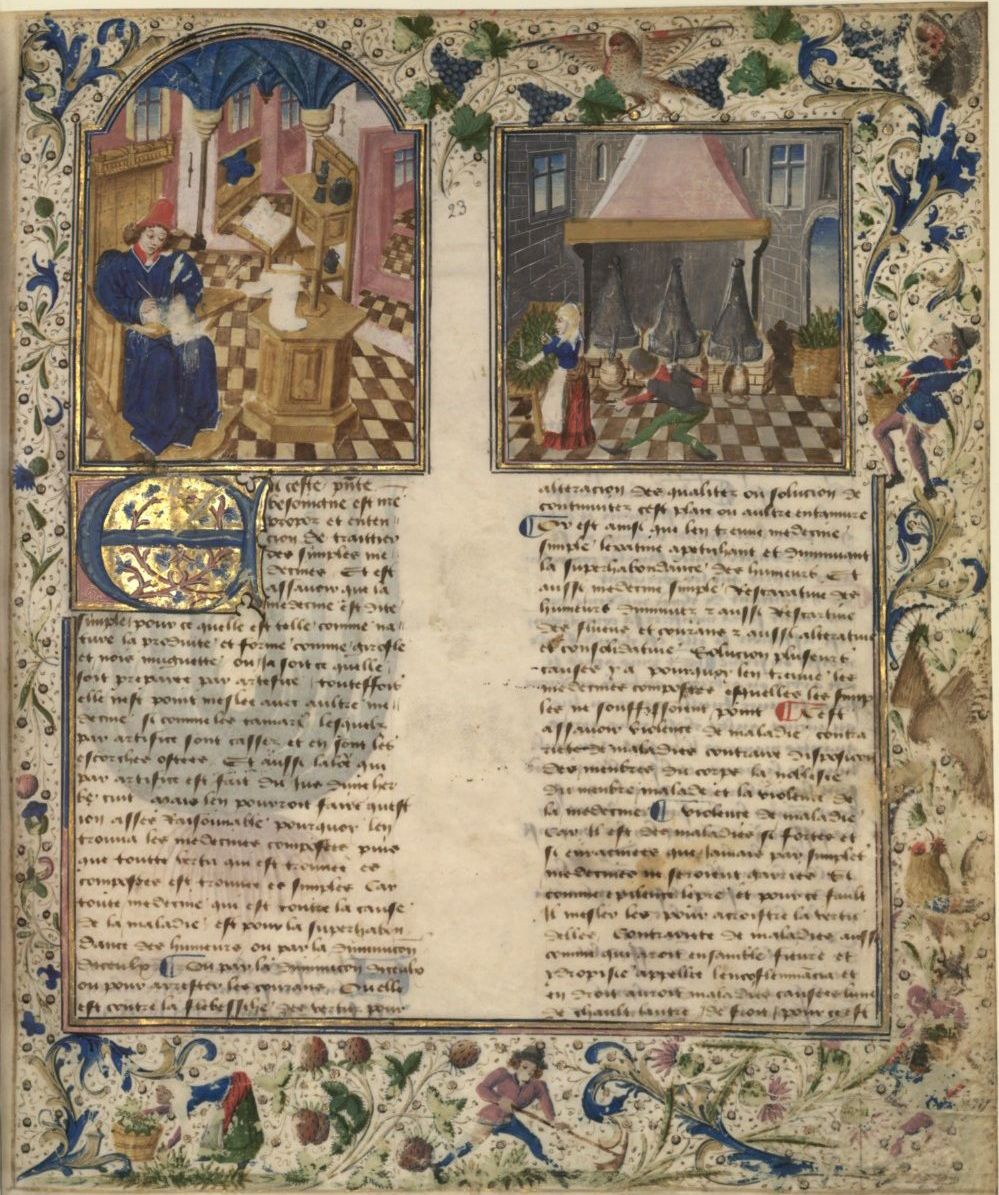 23
En ceste pnte
besoingne est me
propos et enten
cion de traittier
des simples me
decines Et est
assauoir que la
medecine est dite
simple pour ce quelle est telle comme na
ture la produite et forme comme girofle
et nois muguette ou ja soit ce quelle
soit preparee par artefice touteffois
elle nest point meslee auec aultre me
decine si comme les tamars lesquelz
par artifice sont casses et en sont les
escorches ostees Et aussi laloe qui
par artifice est fait du jus dune her
be cuit Mais len pourroit faire quest
ion asses Raisonnable pourquoy len
trouua les medecines composees puis
que toutte vertu qui est trouuee es
composees est trouuee es simples Car
toute medecine qui est contre la cause
de la maladie est pour la superhabon
dance des humeurs ou par la diminucon
diceulx Ou par la diminucon diceulx
ou pour arrester les courans Quelle
est contre la des vertus pour
alteracion des qualites ou solucion de
continuite cest plaie ou aultre entamure
Or est ainsi que len treuue medecine
simple laxatiue apetissant et diminuant
la superhabondance des humeurs Et
aussi medecine simple Restaurative des
humeurs diminuez z aussi Restrictiue
des fluens et courans z aussi alteratiue
et consolidatiue Solucion pluseurs
causes y a pourquoy len treuue les
medecines composees esquelles les simp
les ne souffissoient point Cest
assauoir violence de maladie contra
riete de maladies contraire disposicion
des menbres du corps la noblesse
du menbre malade et la violence de
la medecine Violence de maladie
Car il est des maladies si fortes et
si enracinees que jamais par simples
medecines ne seroient garies Et
comme epilence lepre et pour ce fault
il mesler les pour acroistre la vertu
delles Contrariete de maladies auss
comme qui aroit ensamble fieure et
ydropisie appellee leucoflemancia et
en droit auroit maladies causees lune
de chault lautre de froit pour ce est